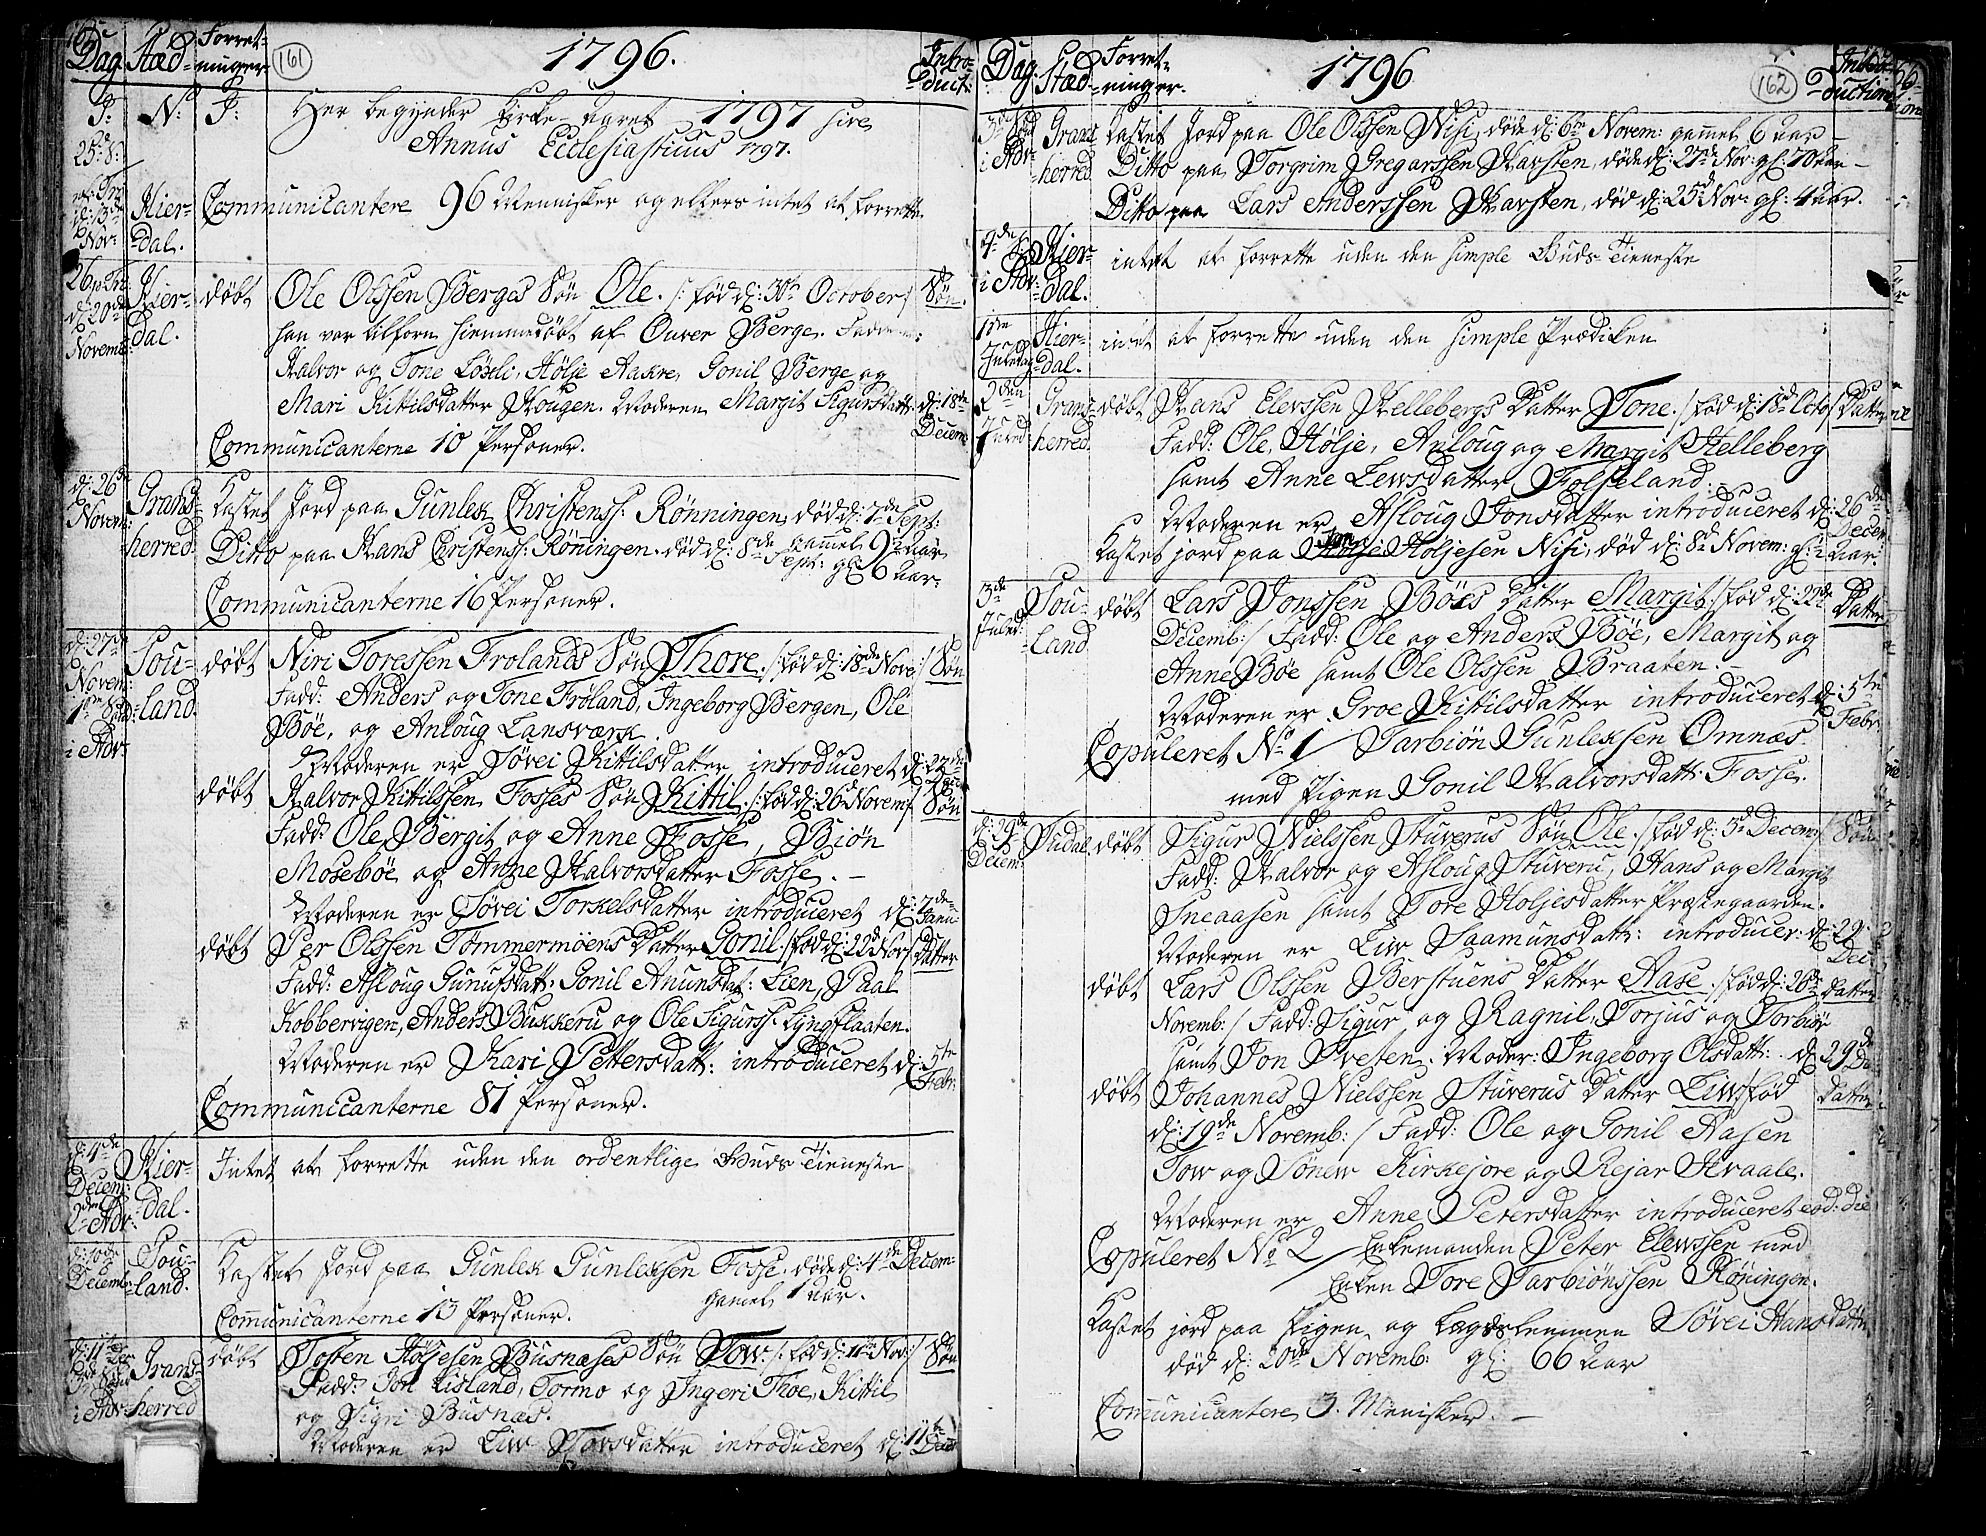 161
1796.
Dag Stæd Forret-ninger Intro-duct:
J: N: J: Her begynder Kirke-Aaret 1797 sive
Annus Ecclesiasticus 1797.
25de S:
p: Tr:
d: 13de
Nov:
Hier-dal.
Communicantere 96 Mennisker og ellers intet at forrette
26 p: Tr:
d: 20de
Novemb:
Hier-dal.
döbt Ole Olssen Berges Sön Ole. /: föd d: 30te October/ Sön.
han var tilforn hiemmedöbt af Ouver Berge. Faddere:
Halvor og Tone Lösli, Hölje Aakre, Gonil Berge og
Mari Kittilsdatter Hougen. Moderen Margit Sigursdatt: d: 18de Decem:
Communicanterne 10 Personer.
d: 26de
Novem:
Grans-herred
Kastet Jord paa Gunlek Christenss: Rönningen, död d: 7de Sept:
gammel 9 1/2 Aar
Ditto paa Hans Christenss: Rönningen. död d: 8de Sept: gl: 6 Aar-
Communicanterne 16 Personer.
d: 27de
Novem:
1ste Sönd:
i Adv:
Sou-land.
döbt Niri Toressen Frolands Sön Thore. /: föd d: 18de Nove:/ Sön
Fadd: Anders og Tone Fröland, Ingeborg Bergen, Ole
Böe, og Anloug Lansværk.
Moderen er Sövei Kittilsdatter introduceret d: 27de
döbt Halvor Kittilssen Fosses Sön Kittil. /: föd d: 26de Novem:/ Sön
Fadd: Ole, Bergit og Anne Fosse, Biön
Moseböe og Anne Halvorsdatter Fosse. -
Moderen er Sövei Torkelsdatter introduceret d: 7de Janu:
döbt Per Olssen Tömmermöens Datter Gonil. /: föd d: 22de Nov:/ Datter
Fadd: Asloug Gunulfsdatt: Gonil Anunsdat: Lien, Paal
Kobbervigen, Anders Bukkeru og Ole Sigurss: Lyngflaaten.
Moderen er Kari Pettersdatt: introduceret d: 5te Febr:
Communicanterne 81 Personer.
d: 4de
Decem:
2den Adv:
Hier-dal.
Intet at forrette uden den ordentlige Guds Tieneste
d: 10de
Decemb:
Sou-land.
Kastet Jord paa Gunlek Gunleksen Fosse, döde d: 4de Decem:
gamel 1 Aar.
Communicanterne 13 Personer.
d: 11te
3de Sönd
i Adv:
Grans-herred
döbt Tosten Höljesen Busnæses Sön Tow. /: föd d: 11te Nov:/ Sön
Fadd: Jon Lisland, Tormo og Ingeri Thoe, Kittil
og Sigri Busnæs.
Moderen er Liw Tovsdatter introduceret d: 11te Decem
162
1796
Dag Stæd Forret-ninger. Intro-duction
3de Sönd
i Adv:
Grans-herred
Kastet Jord paa Ole Olssen Nisi, döde d: 6te Novem: gammel 6 Aar -
Ditto paa Torgrim Gregarssen Harsten, döde d: 27de Nov: gl: 70 Aar -
Ditto paa Lars Anderssen Harsten, död d: 25de Nov: gl: 4 Aar.
4de S
i Adv:
Hier-dal.
intet at forrette uden den simple Guds Tieneste
1ste
Juledag
Hier-dal.
intet at forrette uden den simple Prædiken
2den
Juled:
Grans-herred.
döbt Hans Elevssen Hellebergs Datter Tone. /: föd d: 18de Octo/ Datter
Fadd: Ole, Hölje, Anloug og Margit Helleberg
samt Anne Lewsdatter Folseland.
Moderen er Asloug Jonsdatter introduceret d: 26de Decem
Kastet jord paa Jon Höljesen Nisi, död d: 8de Novem: gl: 2 Aar:
3de
Juled:
Sou-land
döbt Lars Jonssen Böes Datter Margit /: föd d: 22de Datter
Decemb:/ Fadd: Ole og Anders Böe, Margit og
Anne Böe samt Ole Olssen Braaten. -
Moderen er Groe Kittilsdatter introduceret d: 5te Febr:
Copuleret No 1 / Tarbiön Gunleksen Omnæs
med Pigen Gonil Halvorsdatt: Fosse.
d: 29de
Decem:
Tudal
döbt Sigur Nielssen Stuverus Sön Ole. /: föd d: 3de Decem:/ Sön
Fadd: Halvor og Asloug Stuveru, Hans og Margit
Sneaasen samt Tore Höljesdatter Præstegaarden.
Moderen er Liw Saamunsdatt: introducer: d: 29 Dec:
döbt Lars Olssen Berstuens Datter Aase. /: föd d: 26de Datter
Novemb:/ Fadd: Sigur og Ragnil, Torjus og Torbiör
samt Jon Sveten. Moder: Ingeborg Olsdatt: d: 29de De
döbt Johannes Nielssen Stuverus Datter Liw /: föd Datter
d: 19de Novemb:/ Fadd: Ole og Gonil Aasen
Tow og Sönew Kirkejore og Rejar Kvaale.
Moderen er Anne Peversdatter introduceret eod: die
Copuleret No 2 / Enkemanden Peter Elewssen med
Enken Tore Tarbiönssen Röningen.
Kastet jord paa Pigen og Lægdslemmen Sövei Hansdatter
död d: 20de Novemb: gl: 66 Aar
Communicantere 3. Menisker. -